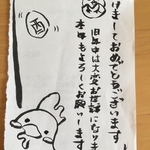 けましておめでとうございます
旧年中は大変お世話になりま
本年もよろしくお願いします
酉